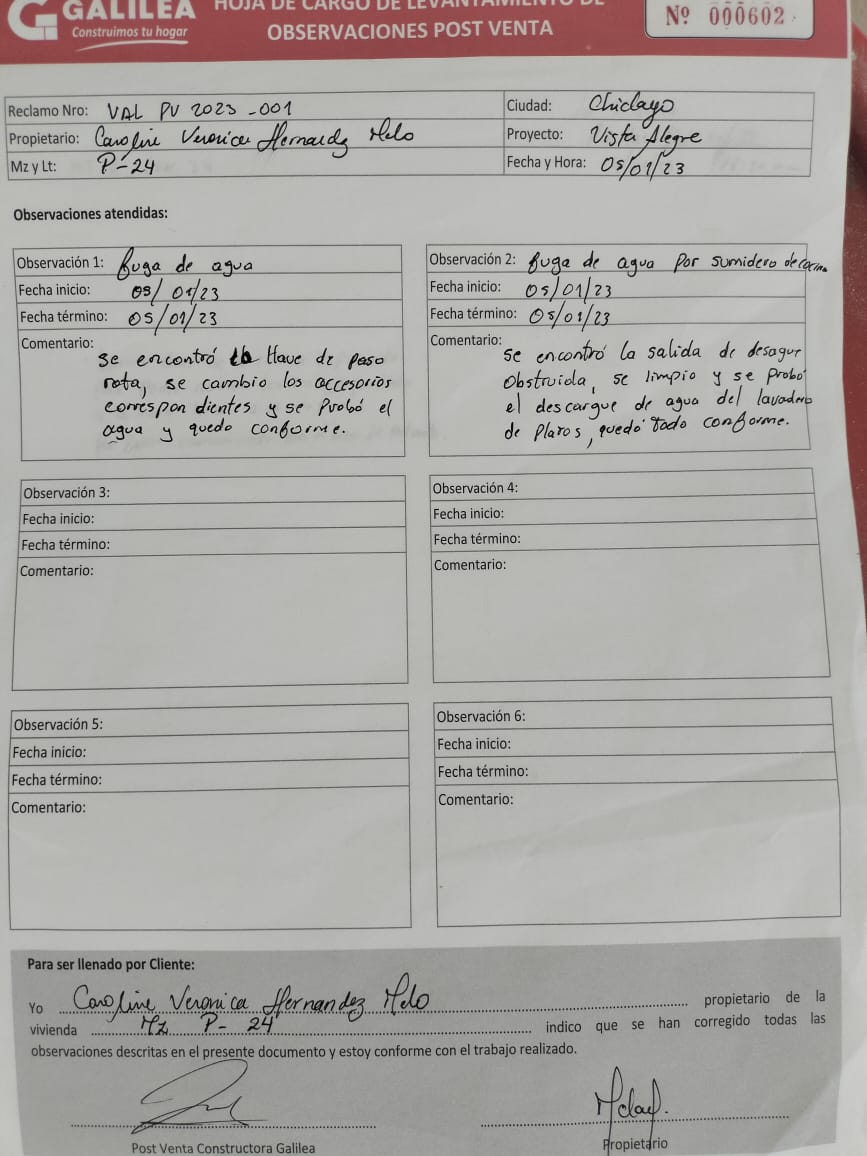 GALILEA
Construimos tu hogar
HOJA DE CARGO DE LEVANTAMIENTO DE
OBSERVACIONES POST VENTA
Nº 000602
Reclamo Nro: VAL PV 2023-001
Ciudad: Chiclayo
Propietario: Caroline Veronica Hernandz Melo
Proyecto: Vista Alegre
Mz y Lt: P-24
Fecha y Hora: 05/01/23
Observaciones atendidas:
Observación 1: fuga de agua
Fecha inicio: 05/01/23
Fecha término: 05/01/23
Comentario:
se encontró la llave de paso
rota, se cambio los accesorios
correspondientes y se probó el
agua y quedo conforme.
Observación 2: fuga de agua por sumidero de cocina
Fecha inicio: 05/01/23
Fecha término: 05/01/23
Comentario:
se encontró la salida de desague
obstruida, se limpio y se probó
el descargue de agua del lavadero
de platos, quedó todo conforme.
Observación 3:
Fecha inicio:
Fecha término:
Comentario:
Observación 4:
Fecha inicio:
Fecha término:
Comentario:
Observación 5:
Fecha inicio:
Fecha término:
Comentario:
Observación 6:
Fecha inicio:
Fecha término:
Comentario:
Para ser llenado por Cliente:
Yo Caroline Veronica Hernandez Melo propietario de la
vivienda Mz P-24 indico que se han corregido todas las
observaciones descritas en el presente documento y estoy conforme con el trabajo realizado.
Post Venta Constructora Galilea
Propietario